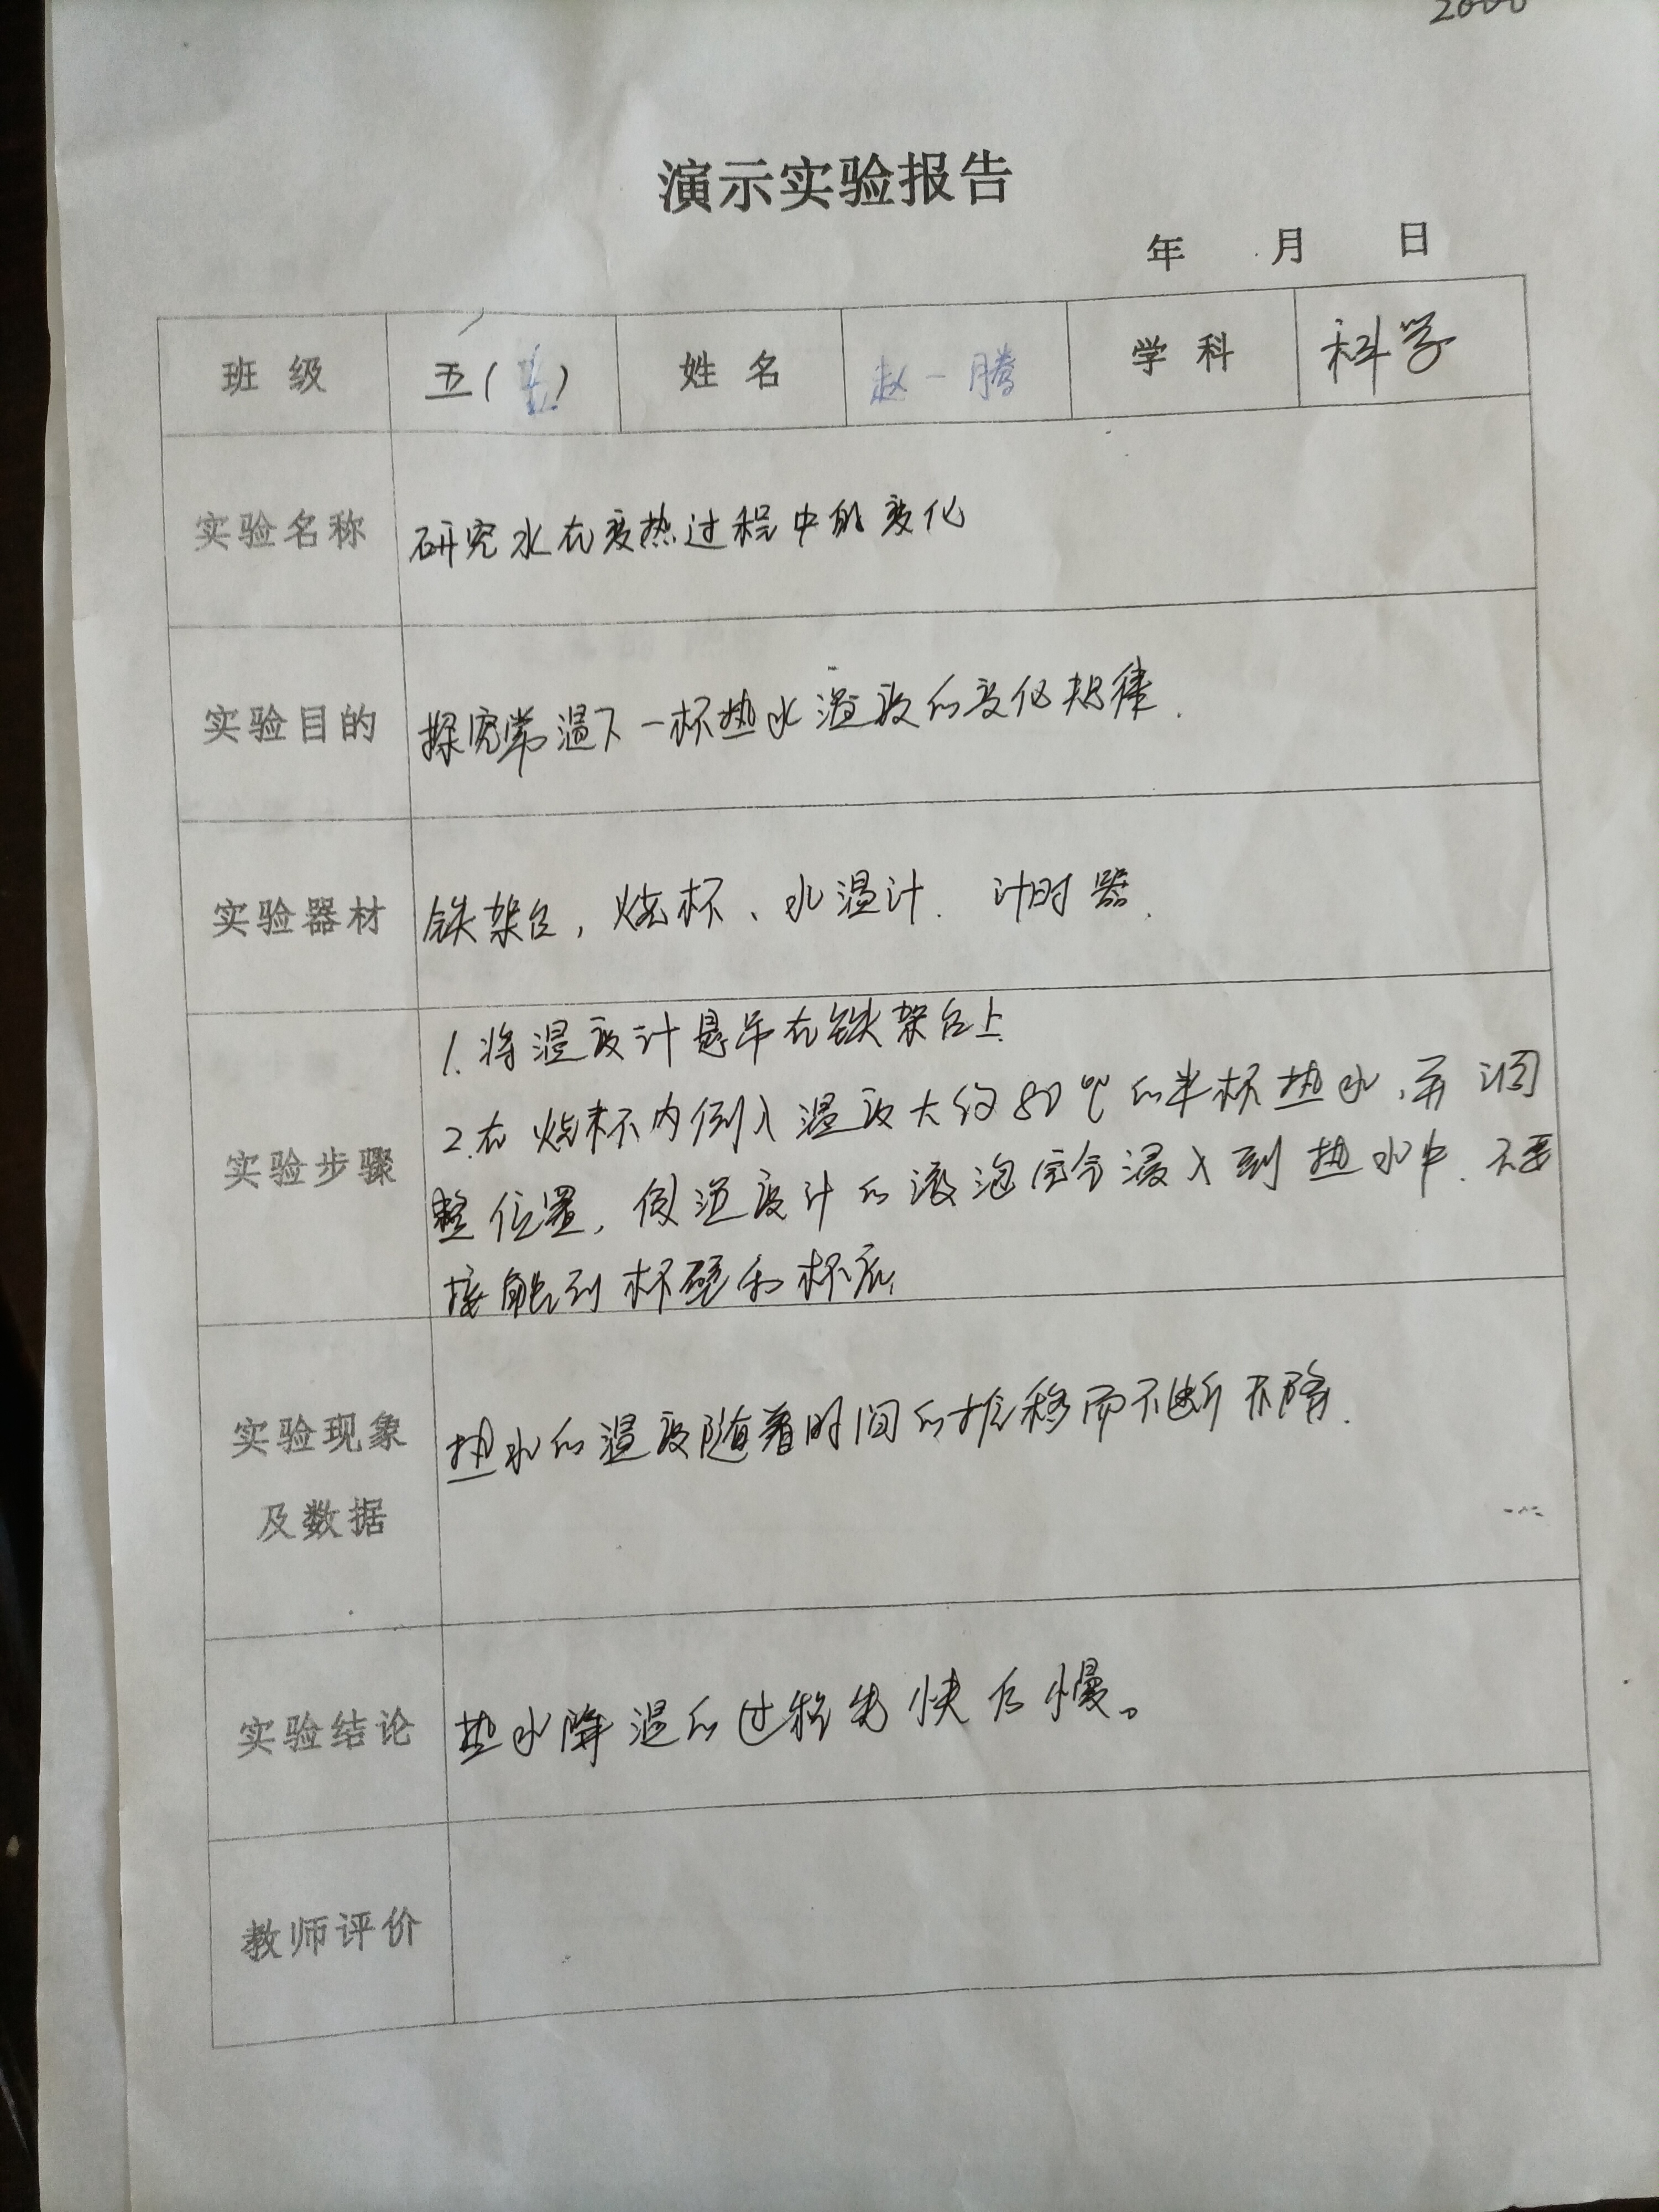 演示实验报告
年 月 日
班级 五( ) 姓名 赵一腾 学科 科学
实验名称 研究水在变热过程中的变化
实验目的 探究常温下一杯热水温度的变化规律.
实验器材 铁架台，烧杯、水温计. 计时器.
1.将温度计悬吊在铁架台上
2.在烧杯内倒入温度大约80℃的半杯热水,并调
实验步骤 整位置，使温度计的液泡完全浸入到热水中.不要
接触到杯壁和杯底
实验现象 热水的温度随着时间的推移而不断下降.
及数据
实验结论 热水降温的过程先快后慢。
教师评价